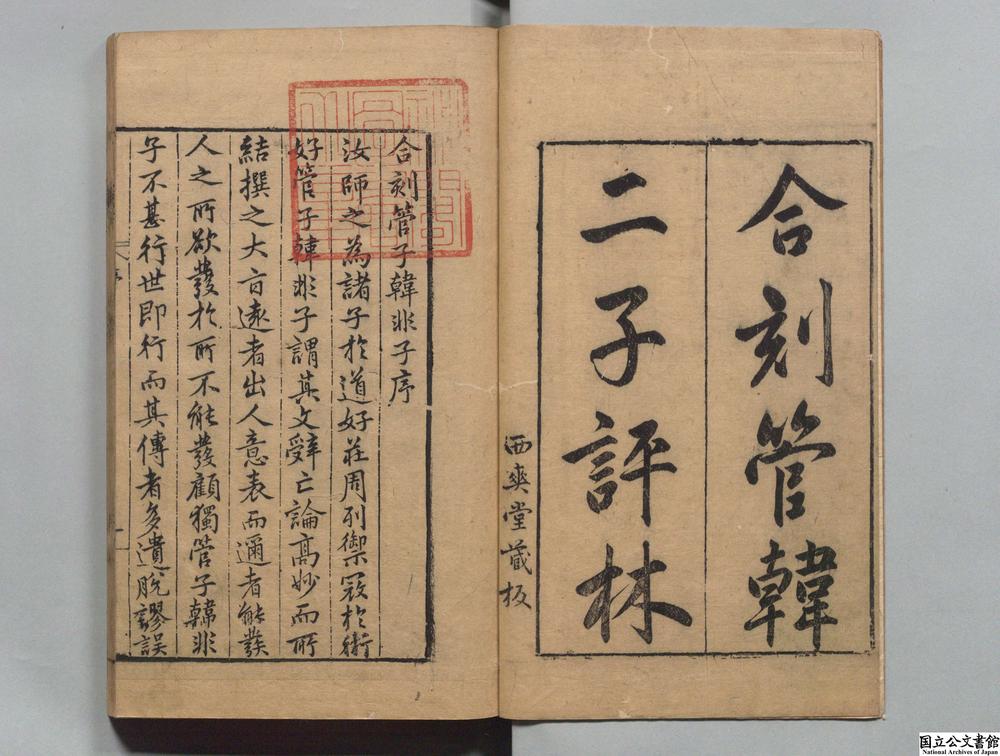 合刻管韓
二子評林
西爽堂藏板
合刻管子韓非子序
汝師之為諸子於道好莊周列禦寇於術
好管子韓非子謂其文辭亡論高妙而所
結撰之大㫖遠者出人意表而邇者能發
人之所欲發於所不能發顧獨管子韓非
子不甚行世即行而其傳者多遺脫謬誤
国立公文書館
National Archives of Japan